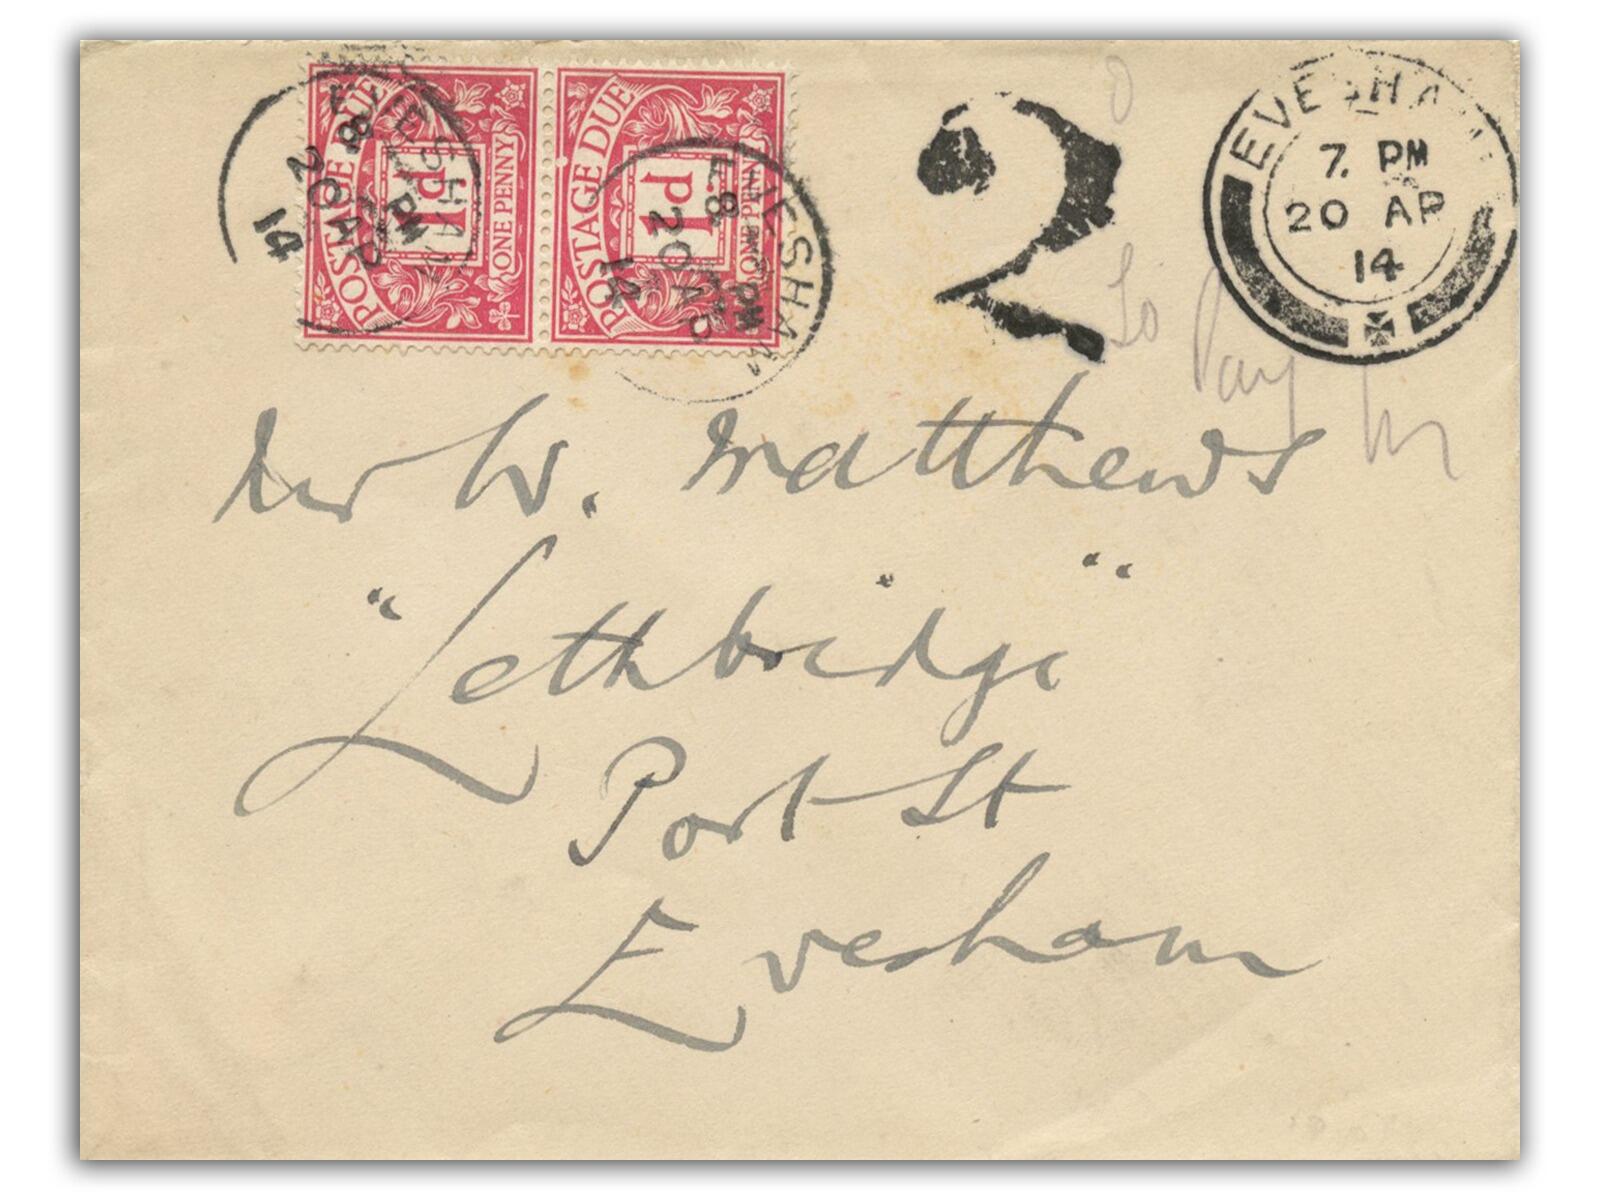 POSTAGE DUE 1d. ONE PENNY
EVESHAM 8 PM 20 AP 14
POSTAGE DUE 1d. ONE PENNY
EVESHAM 8 PM 20 AP 14
2
EVESHAM
7. PM
20 AP
14
To Pay
Mr W. Matthews
"Lethbridge"
Port St
Evesham